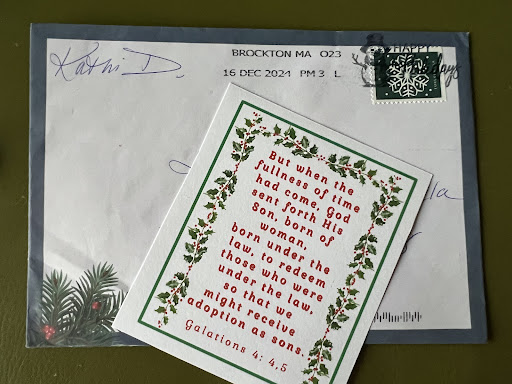 Kathi D.
BROCKTON MA 023
16 DEC 2024 PM 3 L
HAPPY
days
But when the
fullness of time
had come, God
sent forth His
Son, born of
woman,
born under the
law, to redeem
those who were
under the law,
so that we
might receive
adoption as sons.
Galations 4: 4,5